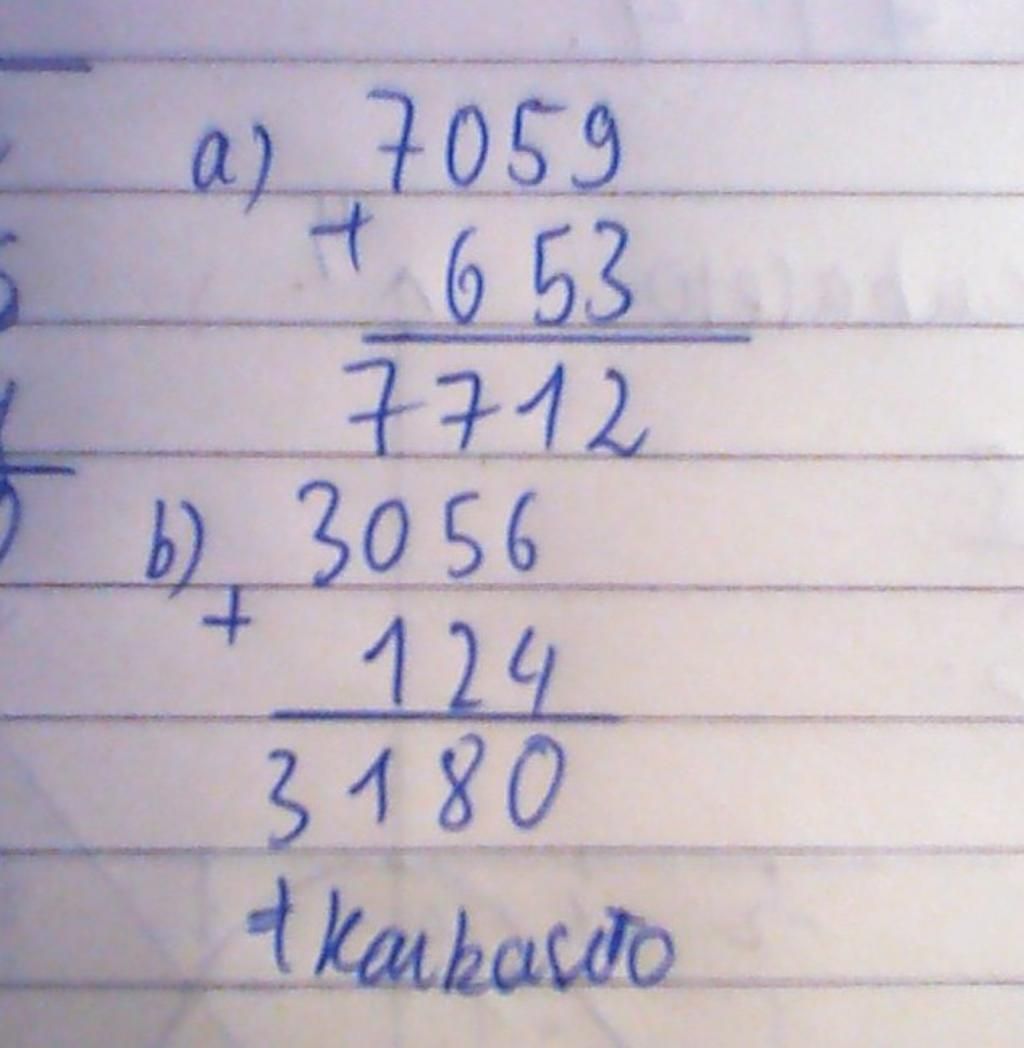 a) 7059
+ 653
7712
b) 3056
+ 124
3180